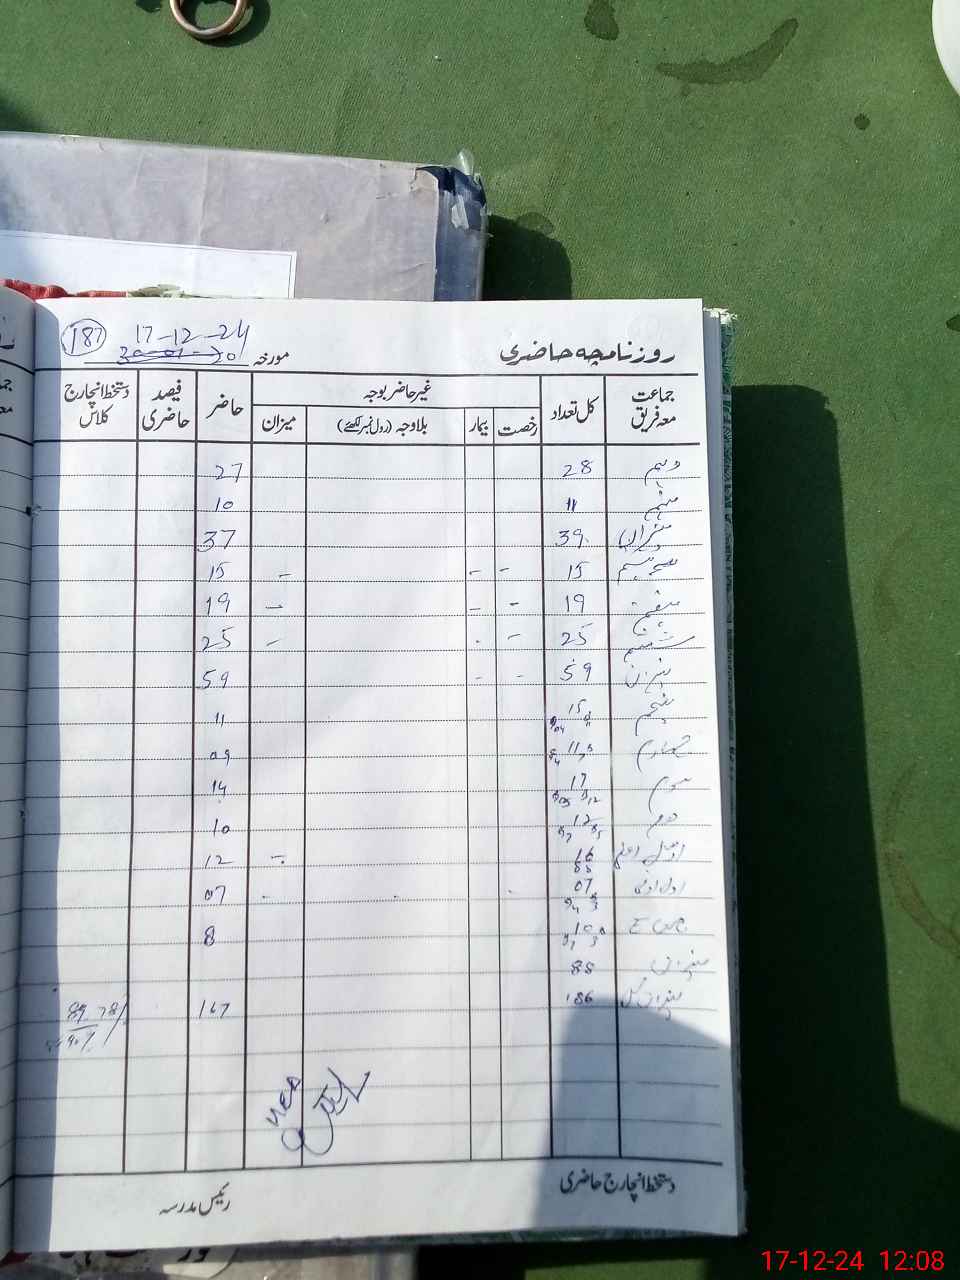 187
17-12-24
روزنامچہ حاضری مورخہ
جماعت معہ فریق کل تعداد غیر حاضر بوجہ حاضر فیصد حاضری دستخط انچارج کلاس
رخصت بیمار بلاوجہ (رول نمبر لکھئے) میزان
دہم 28 27
نہم 11 10
میزان 39 37
ہشتم 15 - - - 15
ہفتم 19 - - - 19
ششم 25 - - - 25
میزان 59 - - 59
پنجم 15 11
چہارم 11 09
سوم 17 14
دوم 12 10
اول اعلیٰ 16 - 12
اول ادنیٰ 07 07
10 8
میزان 88
میزان کل 186 167 89.78%
90%
دستخط انچارج حاضری
رئیس مدرسہ
17-12-24 12:08